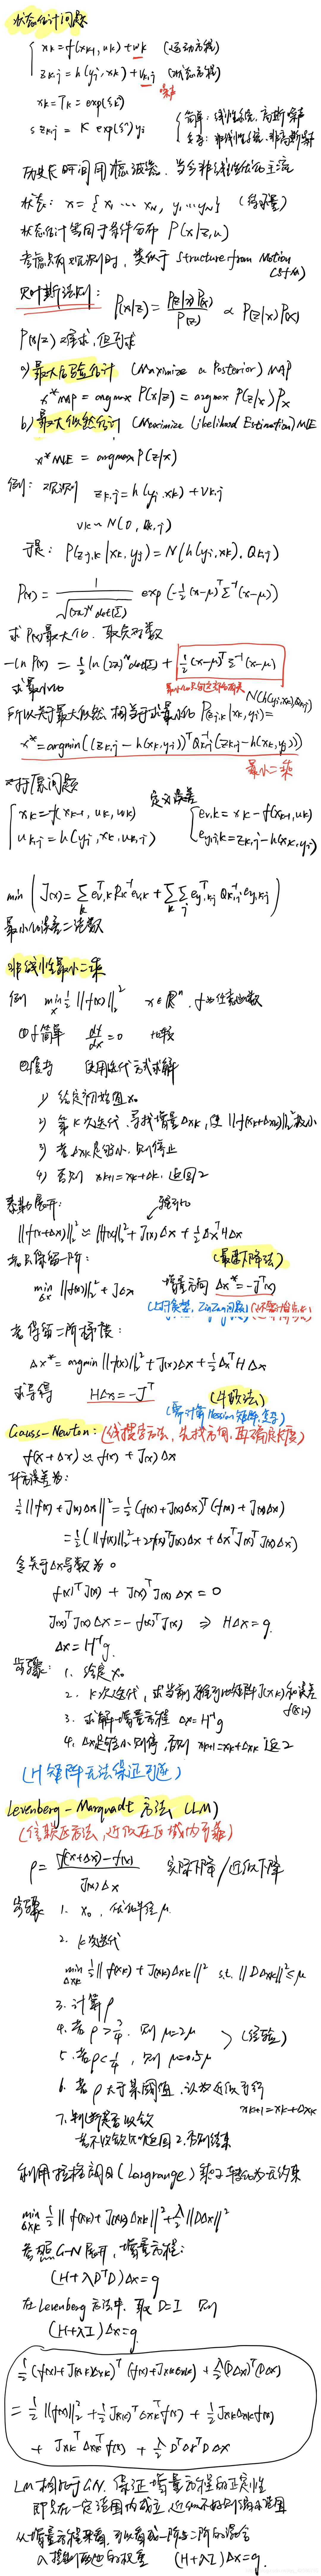 状态估计问题
xk = f(xk-1, uk) + wk (运动方程)
zk,j = h(yj, xk) + vk,j (观测方程)
噪声
xk = Tk = exp(ξ^)
s zk,j = K exp(ξ^) yj
简单: 线性系统, 高斯噪声
复杂: 非线性系统, 非高斯噪声
历史长时间用滤波器, 当今非线性优化主流
状态: x = { x1 ... xN, y1 ... yM } (待估量)
状态估计等同于条件分布 P(x|z,u)
考虑只有观测时, 类似于 Structure from Motion (SfM)
贝叶斯法则: P(x|z) = P(z|x)P(x) / P(z) ∝ P(z|x)P(x)
P(x|z) 难求, 但可求
a) 最大后验估计 (Maximize a Posterior) MAP
x*MAP = argmax P(x|z) = argmax P(z|x) Px
b) 最大似然估计 (Maximize Likelihood Estimation) MLE
x*MLE = argmax P(z|x)
例: 观测 zk,j = h(yj, xk) + vk,j
vk ~ N(0, Qk,j)
于是: P(zj,k | xk, yj) = N(h(yj, xk), Qk,j)
P(x) = 1 / √((2π)^N det(Σ)) exp(-½ (x-μ)^T Σ^-1 (x-μ))
求 P(x) 最大化, 取负对数
-ln P(x) = ½ ln((2π)^N det(Σ)) + ½ (x-μ)^T Σ^-1 (x-μ)
求最小化
所以关于最大似然, 相当于求最小化 P(zj,k | xk, yj) = N(h(yj,xk), Qk,j)
x* = argmin((zk,j - h(xk,yj))^T Qk,j^-1 (zk,j - h(xk,yj)))
最小二乘
xk = f(xk-1, uk, wk)
zk,j = h(yj, xk, vk,j)
定义误差
ev,k = xk - f(xk-1, uk)
ey,j,k = zk,j - h(xk, yj)
min ( J(x) = Σk ev,k^T Rk^-1 ev,k + Σk Σj ey,k,j^T Qk,j^-1 ey,k,j )
最小化误差二范数
非线性最小二乘
例 min x ½ ||f(x)||₂² x ∈ R^n, f 为任意函数
① f 简单 df/dx = 0
② 使用迭代方式求解
1) 给定初始值 x0
2) 第 k 次迭代, 寻找增量 Δxk, 使 ||f(xk+Δxk)||₂² 极小
3) 若 Δxk 足够小, 则停止
4) 否则 xk+1 = xk + Δxk, 返回 2
泰勒展开:
||f(x+Δx)||₂² ≈ ||f(x)||₂² + J(x)Δx + ½ Δx^T H Δx
若只保留一阶: (最速下降法)
min Δx ||f(x)||₂² + JΔx 增量方向 Δx* = -J^T(x)
若保留二阶梯度:
Δx* = argmin ||f(x)||₂² + J(x)Δx + ½ Δx^T H Δx
求导得 HΔx = -J^T (牛顿法)
(需计算 Hessian 矩阵, 复杂)
Gauss-Newton: (线搜索方法, 先找方向, 再确定长度)
f(x+Δx) ≈ f(x) + J(x)Δx
平方误差为:
½ ||f(x) + J(x)Δx||² = ½ (f(x)+J(x)Δx)^T (f(x)+J(x)Δx)
= ½ (||f(x)||₂² + 2f(x)^T J(x)Δx + Δx^T J(x)^T J(x)Δx)
令关于 Δx 导数为 0
f(x)^T J(x) + J(x)^T J(x) Δx = 0
J(x)^T J(x) Δx = -f(x)^T J(x) ⇒ HΔx = g
Δx = H^-1 g
步骤: 1. 给定 x0
2. k 次迭代, 求当前雅可比矩阵 J(xk) 和误差 f(xk)
3. 求解增量方程 Δx = H^-1 g
4. Δx 足够小则停, 否则 xk+1 = xk + Δxk 返 2
(H 矩阵无法保证可逆)
Levenberg-Marquadt 方法 (LM)
(信赖区方法, 近似在区域内可靠)
ρ = f(x+Δx) - f(x) / J(x)Δx 实际下降 / 近似下降
步骤 1. x0, 优化半径 μ
2. k 次迭代
min Δxk ½ ||f(xk) + J(xk)Δxk||² s.t. ||DΔxk||² ≤ μ
3. 计算 ρ
4. 若 ρ > ¾, 则 μ = 2μ
5. 若 ρ < ¼, 则 μ = 0.5μ
(经验)
6. 若 ρ 大于某阈值, 认为近似可行
xk+1 = xk + Δxk
7. 判断是否收敛
若不收敛则返回 2, 否则结束
利用拉格朗日 (Largrange) 乘子 转化为无约束
min Δxk ½ ||f(xk) + J(xk)Δxk||² + λ/2 ||DΔx||²
参照 G-N 展开, 增量方程:
(H + λD^T D)Δx = g
在 Levenberg 方法中, 取 D = I 则
(H + λI)Δx = g
½ (f(x)+J(xk)Δxk)^T (f(x)+J(xk)Δxk) + λ/2 (DΔx)^T (DΔx)
= ½ ||f(x)||₂² + ½ J(xk)^T Δxk^T f(x) + ½ J(xk)Δxk f(x)
+ J(xk)^T Δxk^T f(x) + λ/2 D^T Δx^T D Δx
LM 相比于 GN, 保证增量方程的正定性
即只在一定范围内成立, 近似不好则缩小范围
从增量方程来看, 可以看成一阶与二阶的混合
λ 控制两边的权重 (H + λI)Δx = g